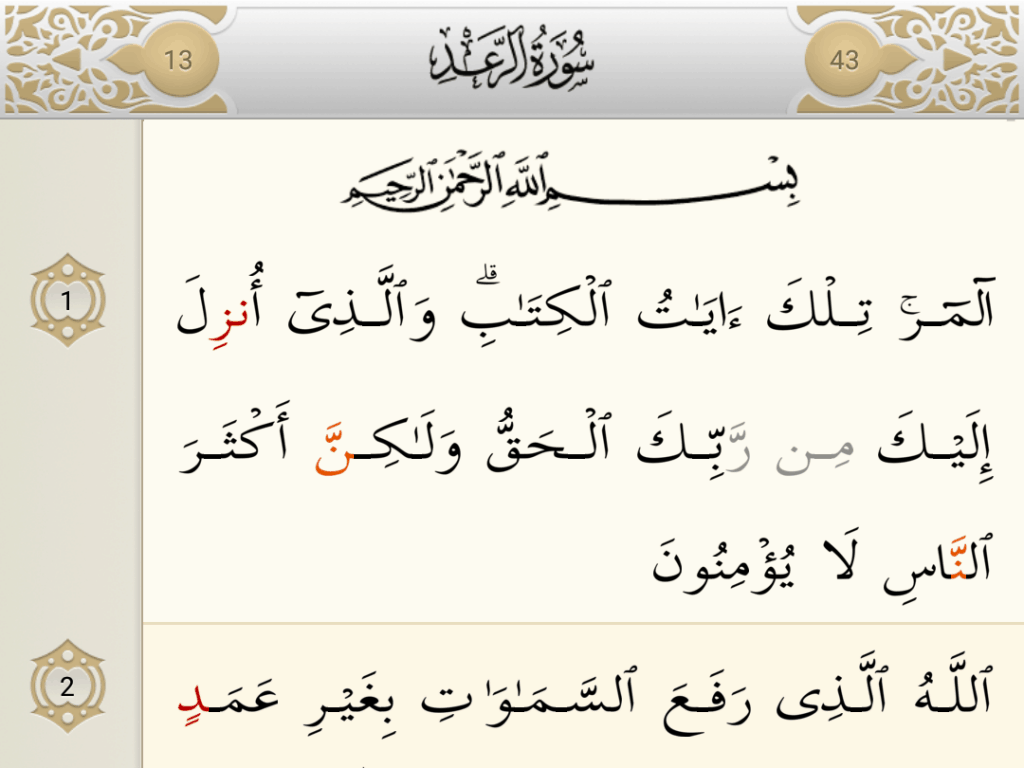 13
سُورَةُ الرَّعْدِ
43
بِسْمِ ٱللَّهِ ٱلرَّحْمَٰنِ ٱلرَّحِيمِ
1
الٓمٓرۚ تِلْكَ ءَايَـٰتُ ٱلْكِتَـٰبِۗ وَٱلَّذِىٓ أُنزِلَ
إِلَيْكَ مِن رَّبِّكَ ٱلْحَقُّ وَلَـٰكِنَّ أَكْثَرَ
ٱلنَّاسِ لَا يُؤْمِنُونَ
2
ٱللَّهُ ٱلَّذِى رَفَعَ ٱلسَّمَـٰوَٰتِ بِغَيْرِ عَمَدٍ